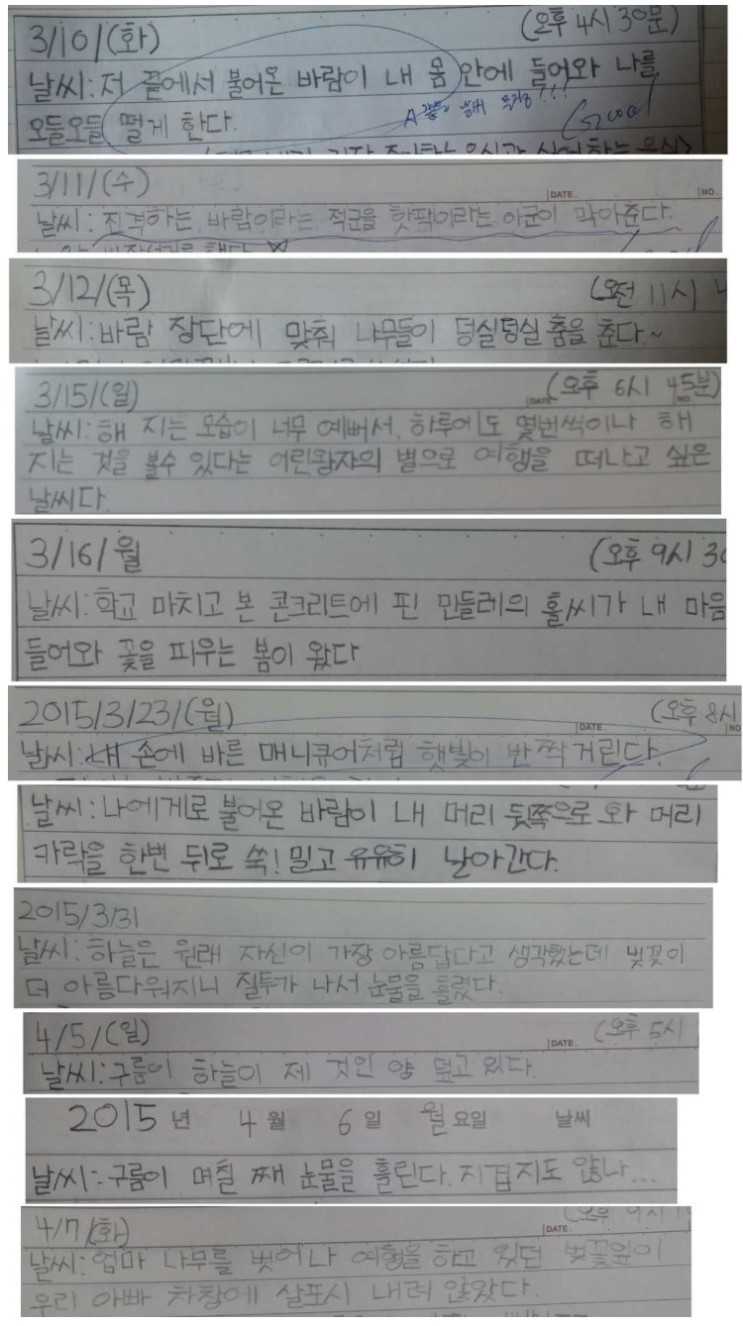 3/10/(화) (오후 4시 30분)
날씨:저 끝에서 불어온 바람이 내 몸 안에 들어와 나를
오들오들 떨게 한다.
3/11/(수) DATE. NO.
날씨: 진격하는 바람이라는 적군을 핫팩이라는 아군이 막아준다.
3/12/(목) (오전 11시)
날씨:바람 장단에 맞춰 나무들이 덩실덩실 춤을 춘다~
3/15/(일) (오후 6시 45분)
날씨:해 지는 모습이 너무 예뻐서, 하루에도 몇번씩이나 해
지는 것을 볼수 있다는 어린왕자의 별으로 여행을 떠나고 싶은
날씨다.
3/16/월 (오후 9시 30
날씨:학교 마치고 본 콘크리트에 핀 민들레의 홀씨가 내 마음
들어와 꽃을 피우는 봄이 왔다
2015/3/23/(월) DATE. (오후 8시
날씨:내 손에 바른 매니큐어처럼 햇빛이 반짝거린다.
날씨:나에게로 불어온 바람이 내 머리 뒷쪽으로 와 머리
카락을 한번 뒤로 쓱! 밀고 유유히 날아간다.
2015/3/31
날씨:하늘은 원래 자신이 가장 아름답다고 생각했는데 벚꽃이
더 아름다워지니 질투가 나서 눈물을 흘렸다.
4/5/(일) DATE. (오후 5시
날씨:구름이 하늘이 제 것인 양 덮고 있다.
2015 년 4 월 6 일 월 요일 날씨
날씨:구름이 며칠 째 눈물을 흘린다. 지겹지도 않나...
4/7/(화) DATE.
날씨:엄마 나무를 벗어나 여행을 하고 있던 벚꽃잎이
우리 아빠 차창에 살포시 내려 앉았다.